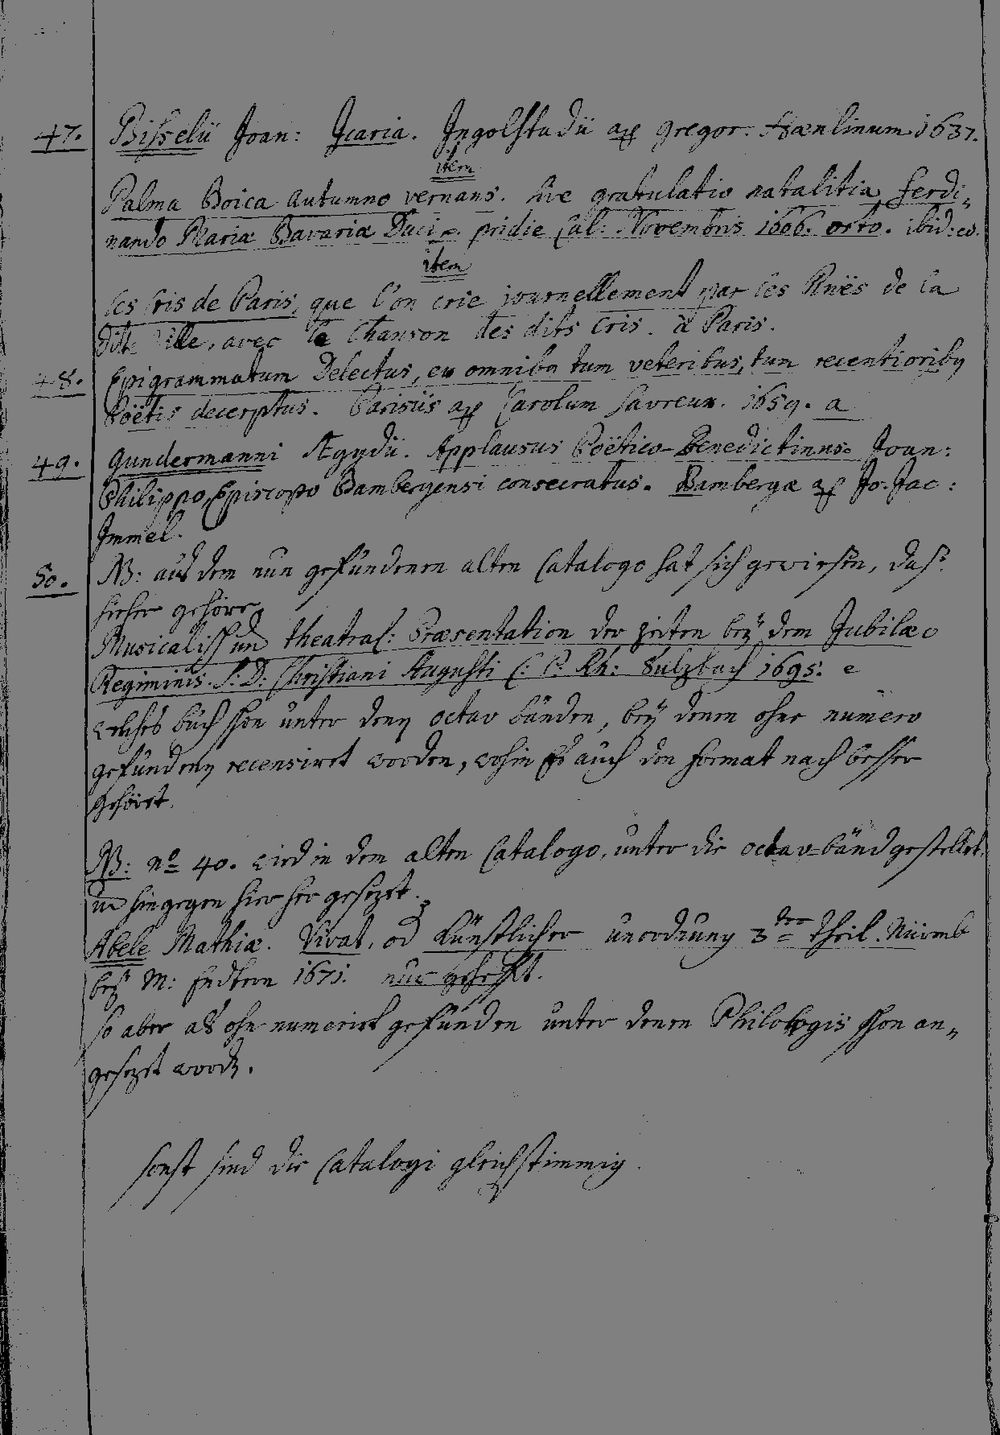 47. Bisselii Joan: Icaria. Ingolstadii ap Gregor: Hænlinum 1637.
item
Palma Boica Autumno vernans. sive gratulatio natalitia, Ferdi„
nando Mariæ Bavariæ Duci pridie Cal: Novembris 1606. orto. ibid: eod.
item
Les Cris de Paris, que l'on crie journellement par les Ruës de la
ditte Ville, avec le Chanson des dits Cris. à Paris.
48. Epigrammatum Delectus, ex omnibus tum veteribus, tum recentioribus
Poëtis decerptus. Parisiis ap Carolum Savreux. 1659. a
49. Gundermanni Ægydii. Applausus Poëtico-Benedictinus. Joan:
Philippo, Episcopo Bambergensi consecratus. Bambergæ ap Jo. Jac:
Immel.
50. NB: aus dem nun gefundenen alten Catalogo hat sich gewiesen, dass
hieher gehöre
Musicalisch und theatral: Præsentation der Zeiten bey dem Jubilæo
Regiminis. S: D: Christiani Augusti C: P: Rh: Sulzbach 1695. e
welches buch schon unter denen octav bänden, bey denen ohne numero
gefundenen recensiret worden, wohin es auch den format nach besser
gehöret.
NB: no 40. wird in dem alten Catalogo, unter die octav-bänd gestellet,
hingegen hier her gesezet.
Abele Mathiæ. Vivat, od Künstlicher unordnung 3ter theil. Nürnb
bey M: Endtern 1671. nur gehefft.
so aber als ohne numerirt gefunden unter denen Philologis schon an„
gesezet word.
sonst sind die Catalogi gleichstimmig.